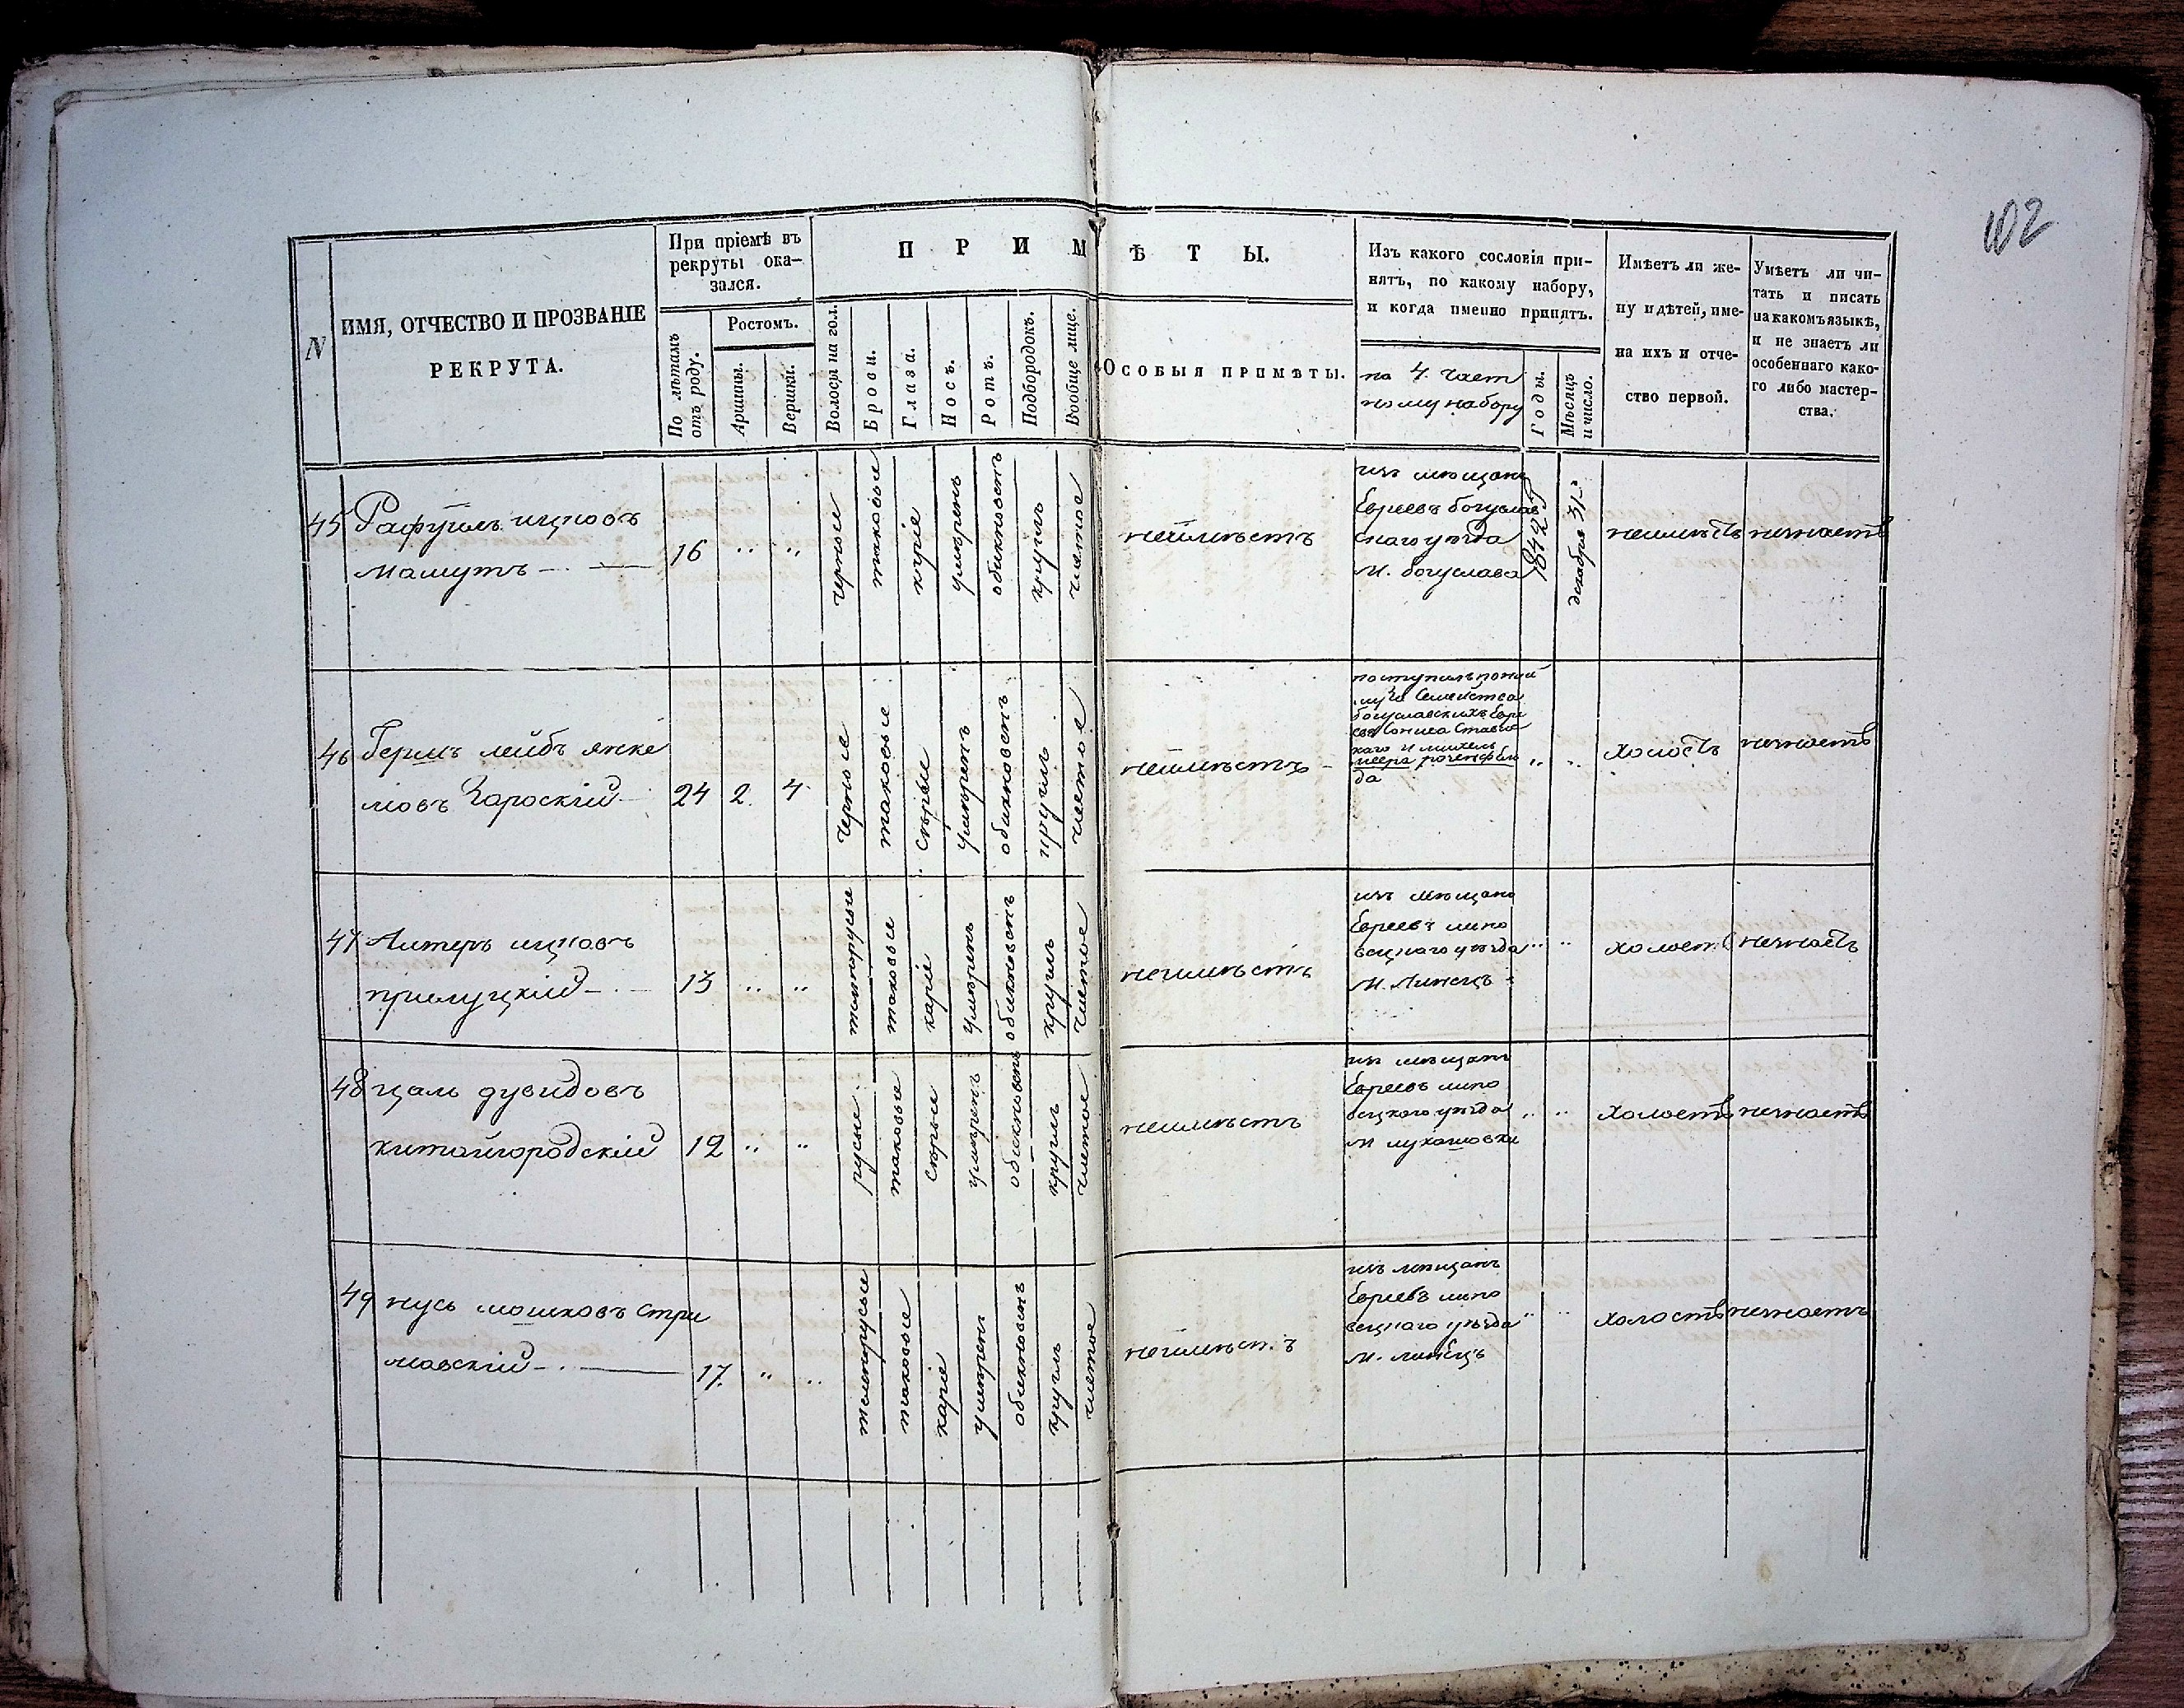 102
N
ИМЯ, ОТЧЕСТВО И ПРОЗВАНІЕ
РЕКРУТА.
При пріемѣ въ
рекруты ока-
зался.
По лѣтамъ
отъ роду.
Ростомъ.
Аршины.
Вершки.
ПРИМѢТЫ.
Волосы на гол.
Брови.
Глаза.
Носъ.
Ротъ.
Подбородокъ.
Вообще лице.
Особыя примѣты.
Изъ какого сословія при-
нятъ, по какому набору,
и когда именно принятъ.
по 4. част
ному набору
Годы.
Мѣсяцъ
и число.
Имѣетъ ли же-
ну и дѣтей, име-
на ихъ и отче-
ство первой.
Умѣетъ ли чи-
тать и писать
на какомъ языкѣ,
и не знаетъ ли
особеннаго како-
го либо мастер-
ства.
45
Рафуилъ ицковъ
Машутъ
16
"
"
черные
таковые
каріе
умѣренъ
обыкновенъ
круглъ
чистое
неимѣетъ
изъ мѣщанъ
Евреевъ богуслав
скаго уѣзда
М. богуслава
1842
декабря 31
неимѣетъ
незнаетъ
46
Гершъ лейбъ янке
лювъ Зароскій
24
2.
4
черные
таковые
сѣрые
умѣренъ
обыкновенъ
круглъ
чистое
неимѣетъ
да
"
"
холостъ
незнаетъ
47
Алтеръ ицковъ
прилуцкій
13
"
"
темнорусые
таковые
каріе
умѣренъ
обыкновенъ
круглъ
чистое
неимѣетъ
изъ мѣщанъ
Евреевъ липо
вецкаго уѣзда
М. Линецъ
"
"
холостъ
незнаетъ
48
цаль дувидовъ
китайгородскій
12
"
"
русые
таковые
сѣрые
умѣренъ
обыкновенъ
круглъ
чистое
неимѣетъ
изъ мѣщанъ
Евреевъ липо
вецкаго уѣзда
М лукашовки
"
"
холостъ
незнаетъ
49
нусь мошковъ стри
жавскій
17.
"
"
темнорусые
таковые
каріе
умѣренъ
обыкновенъ
круглъ
чистое
неимѣетъ
изъ мѣщанъ
Евреевъ липо
вецкаго уѣзда
М. линецъ
"
"
холостъ
незнаетъ